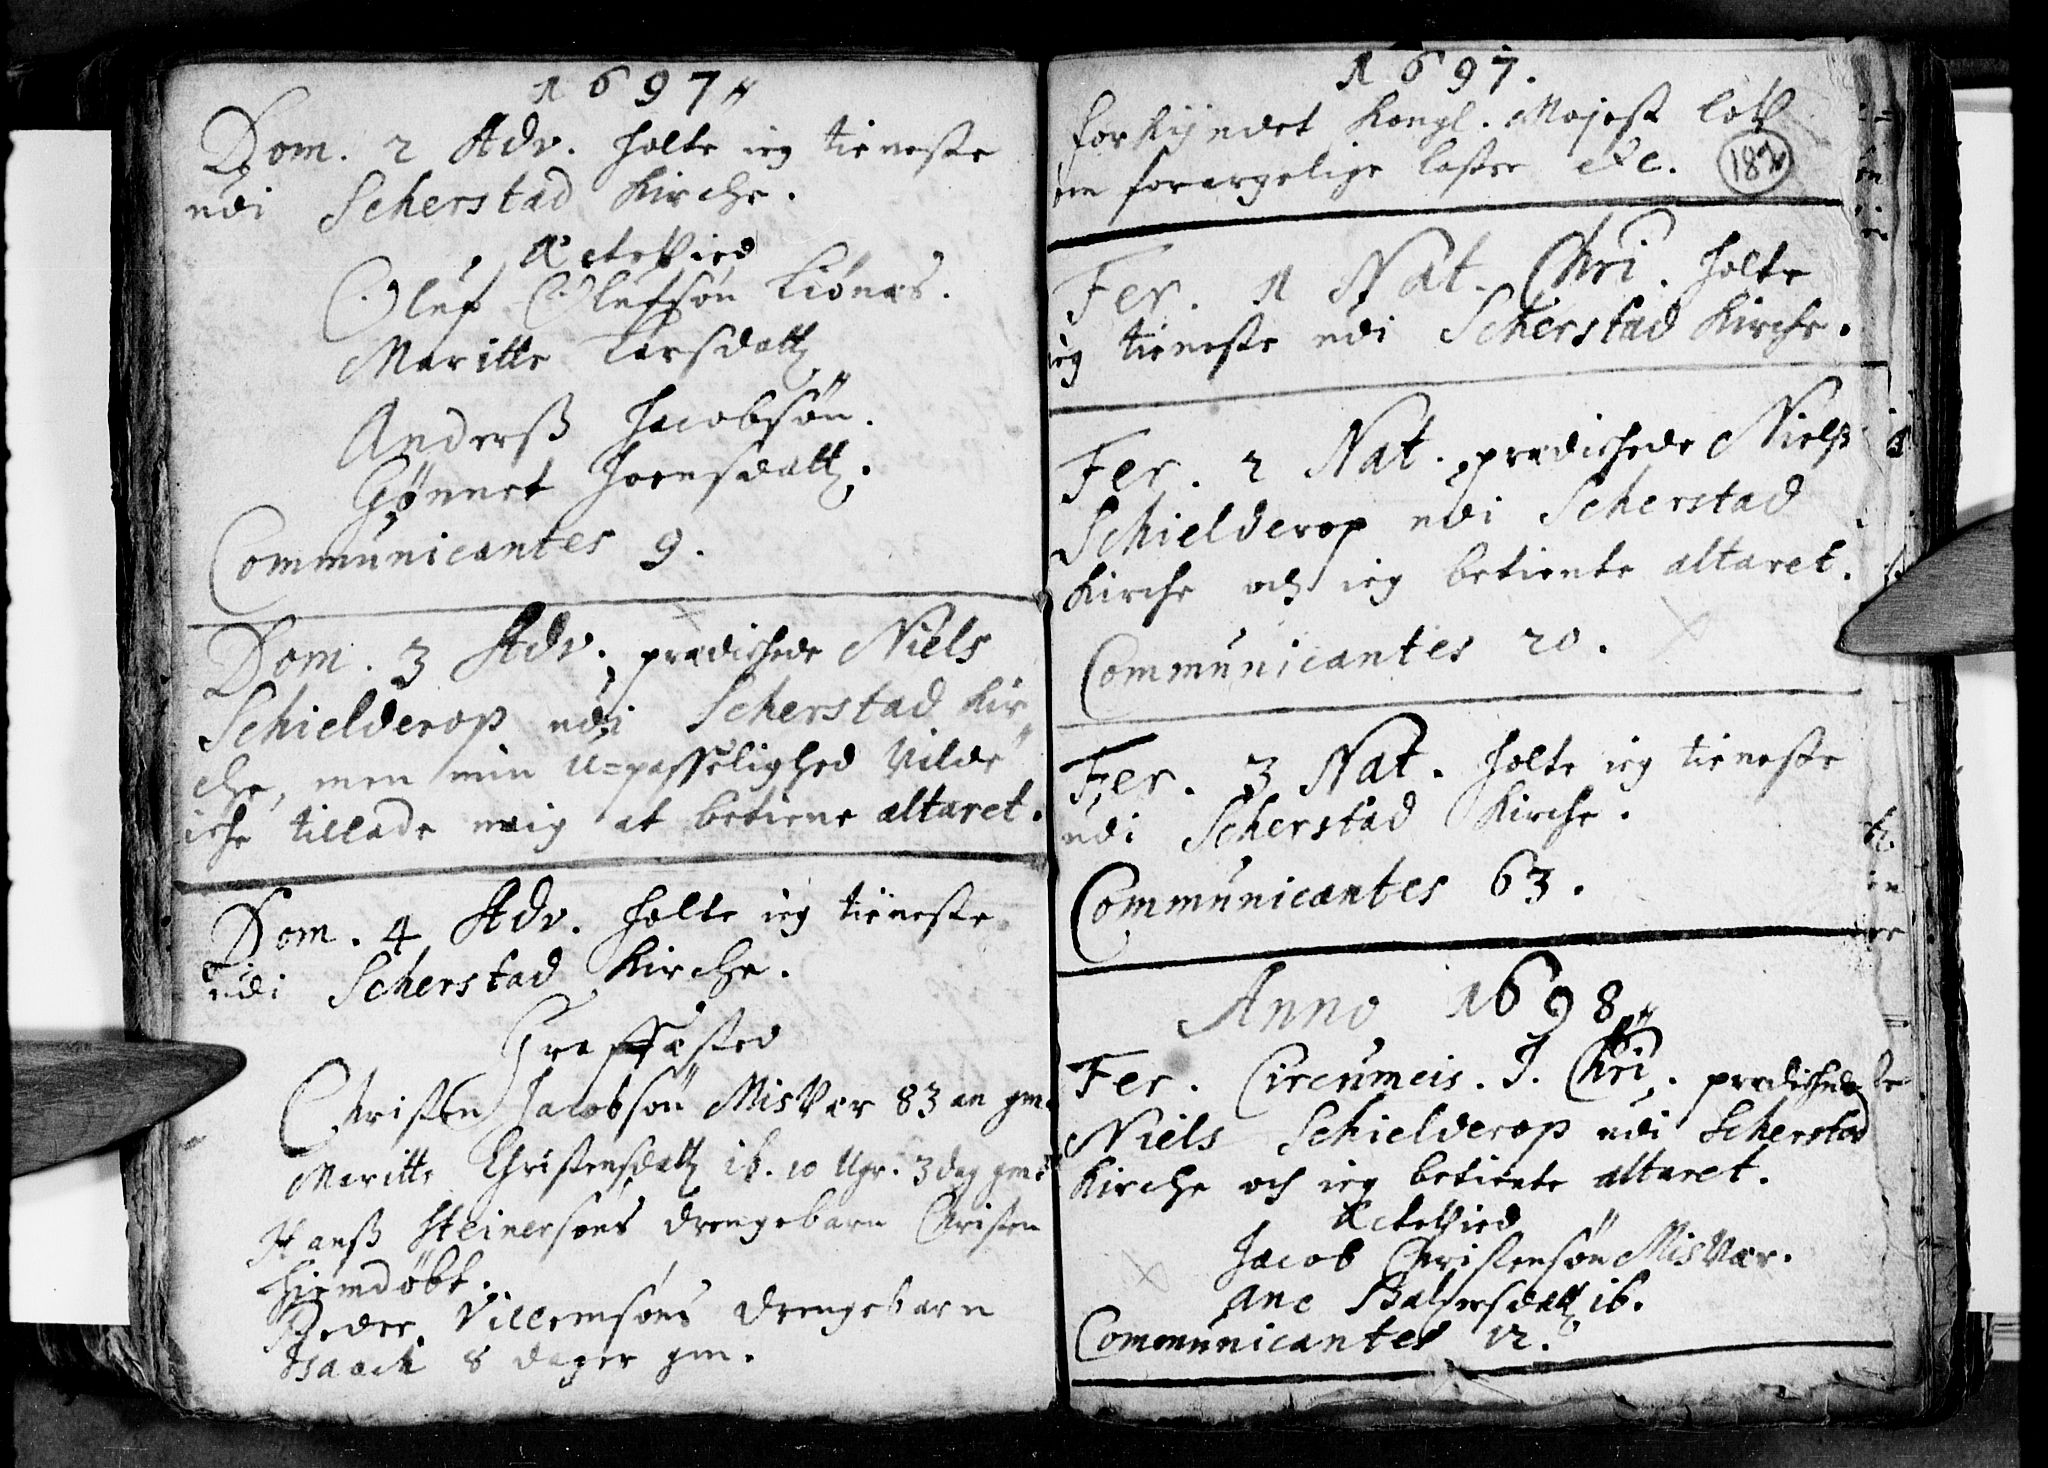 1697
Dom. 2 Adv. holte ieg tieneste
udi Scherstad Kirche.
Ectevied
Oluf Olufsøn Liønæs.
Maritte Larsdatt.
Anderß Jacobsøn.
Gønnet Joensdatt.
Communicantes 9.
Dom. 3 Adv. prædichede Niels
Schielderop udi Scherstad Kir-
che, men min U=passelighed vilde
iche tillade mig at betiene altaret.
Dom. 4 Adv. holte ieg tieneste
udi Scherstad Kirche.
Graffæsted
Christen Jacobsøn Misvær 83 aar gml
Maritte Christensdatt. ib. 10 Ugr. 3 dag gml
Hanß Steinersøns drengebarn Christen
hiemdøbt.
Peder Villemsøns drengebarn
Isaach 8 dager gm.
1697.
forkyndet Kongl. Mayest
om forargelige laster etc.
182
Fer. 1 Nat. Chri. holte
ieg tieneste udi Scherstad Kirche.
Fer. 2 Nat. prædichede Nielß
Schielderop udi Scherstad
Kirche och ieg betiente altaret.
Communicantes 20.
Fer. 3 Nat. holte ieg tieneste
udi Scherstad Kirche.
Communicantes 63.
Anno 1698
Fer. Circumcis. J. Chri. prædichede
Niels Schielderop udi Scherstad
Kirche och ieg betiente altaret.
Ectevied
Jacob Christensøn Misvær.
Ane Balzersdatt. ib.
Communicantes 12.